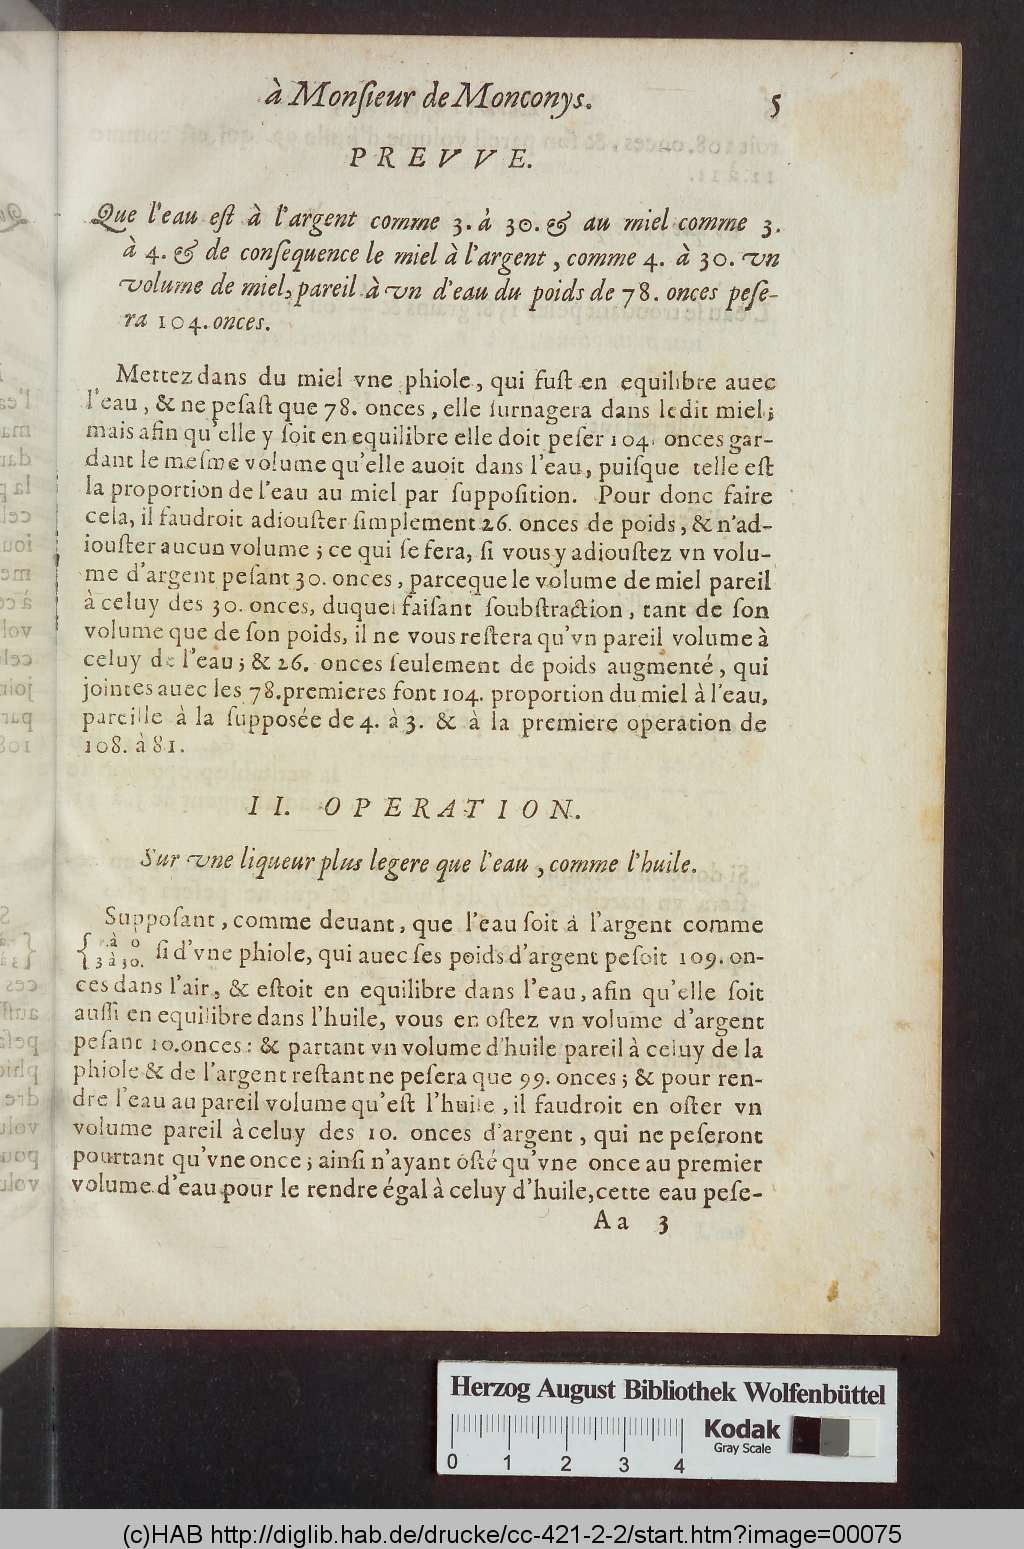 à Monſieur de Monconys. 5
PREVVE.
Que l'eau eſt à l'argent comme 3. à 30. & au miel comme 3.
à 4. & de conſequence le miel à l'argent, comme 4. à 30. vn
volume de miel, pareil à vn d'eau du poids de 78. onces peſe-
ra 104. onces.
Mettez dans du miel vne phiole, qui fuſt en equilibre auec
l'eau, & ne peſaſt que 78. onces, elle ſurnagera dans ledit miel;
mais afin qu'elle y ſoit en equilibre elle doit peſer 104. onces gar-
dant le meſme volume qu'elle auoit dans l'eau, puiſque telle eſt
la proportion de l'eau au miel par ſuppoſition. Pour donc faire
cela, il faudroit adiouſter ſimplement 26. onces de poids, & n'ad-
iouſter aucun volume; ce qui ſe fera, ſi vous y adiouſtez vn volu-
me d'argent peſant 30. onces, parceque le volume de miel pareil
à celuy des 30. onces, duquel faiſant ſoubſtraction, tant de ſon
volume que de ſon poids, il ne vous reſtera qu'vn pareil volume à
celuy de l'eau; & 26. onces ſeulement de poids augmenté, qui
jointes auec les 78. premieres font 104. proportion du miel à l'eau,
pareille à la ſuppoſée de 4. à 3. & à la premiere operation de
108. à 81.
II. OPERATION.
Sur vne liqueur plus legere que l'eau, comme l'huile.
Suppoſant, comme deuant, que l'eau ſoit à l'argent comme
{ à 0
3 à 30. ſi d'vne phiole, qui auec ſes poids d'argent peſoit 109. on-
ces dans l'air, & eſtoit en equilibre dans l'eau, afin qu'elle ſoit
auſſi en equilibre dans l'huile, vous en oſtez vn volume d'argent
peſant 10. onces: & partant vn volume d'huile pareil à celuy de la
phiole & de l'argent reſtant ne peſera que 99. onces; & pour ren-
dre l'eau au pareil volume qu'eſt l'huile, il faudroit en oſter vn
volume pareil à celuy des 10. onces d'argent, qui ne peſeront
pourtant qu'vne once; ainſi n'ayant oſté qu'vne once au premier
volume d'eau pour le rendre égal à celuy d'huile, cette eau peſe-
Aa 3
Herzog August Bibliothek Wolfenbüttel
Kodak
Gray Scale
0 1 2 3 4
(c)HAB http://diglib.hab.de/drucke/cc-421-2-2/start.htm?image=00075